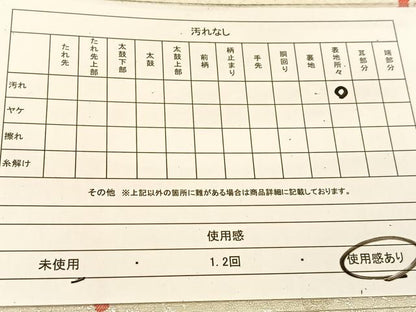 汚れなし
たれ先 たれ先上部 太鼓下部 太鼓 太鼓上部 前柄 柄止まり 手先 胴回り 裏地 表地所々 耳部分 端部分
汚れ
ヤケ
擦れ
糸解け
その他 ※上記以外の箇所に難がある場合は商品詳細に記載しております。
使用感
未使用 ・ 1.2回 ・ 使用感あり